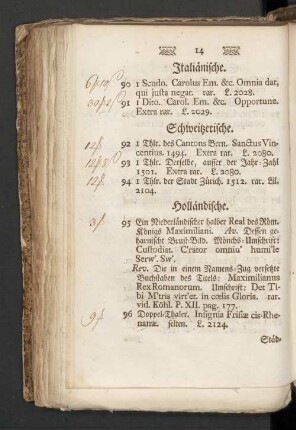 14
Italiänische.
90 1 Scudo. Carolus Em. &c. Omnia dat,
qui justa negat. rar. L. 2028.
91 1 Dito. Carol. Em. &c. Opportune.
Extra rar. L. 2029.
Schweitzerische.
92 1 Thlr. des Cantons Bern. Sanctus Vin-
centius. 1494. Extra rar. L. 2080.
93 1 Thlr. Derselbe, ausser der Jahr-Zahl
1501. Extra rar. L. 2080.
94 1 Thlr. der Stadt Zürich. 1512. rar. Lil.
2104.
Holländische.
95 Ein Niederländischer halber Real des Röm.
Königs Maximiliani. Av. Dessen ge-
harnischt Brust-Bild. Mönchs-Umschrift
Custodiat. C'rator omniu' humi'le
Serw'. Sw'.
Rev. Die in einem Namens-Zug versetzte
Buchstaben des Tituls: Maximilianus
Rex Romanorum. Umschrift: Det Ti-
bi M'tria virt'et. in cœlis Gloria. rar.
vid. Köhl. P. XII. pag. 177.
96 Doppel-Thaler. Insignia Frisiæ cis-Rhe-
nanæ. selten. L. 2124.
Städ-